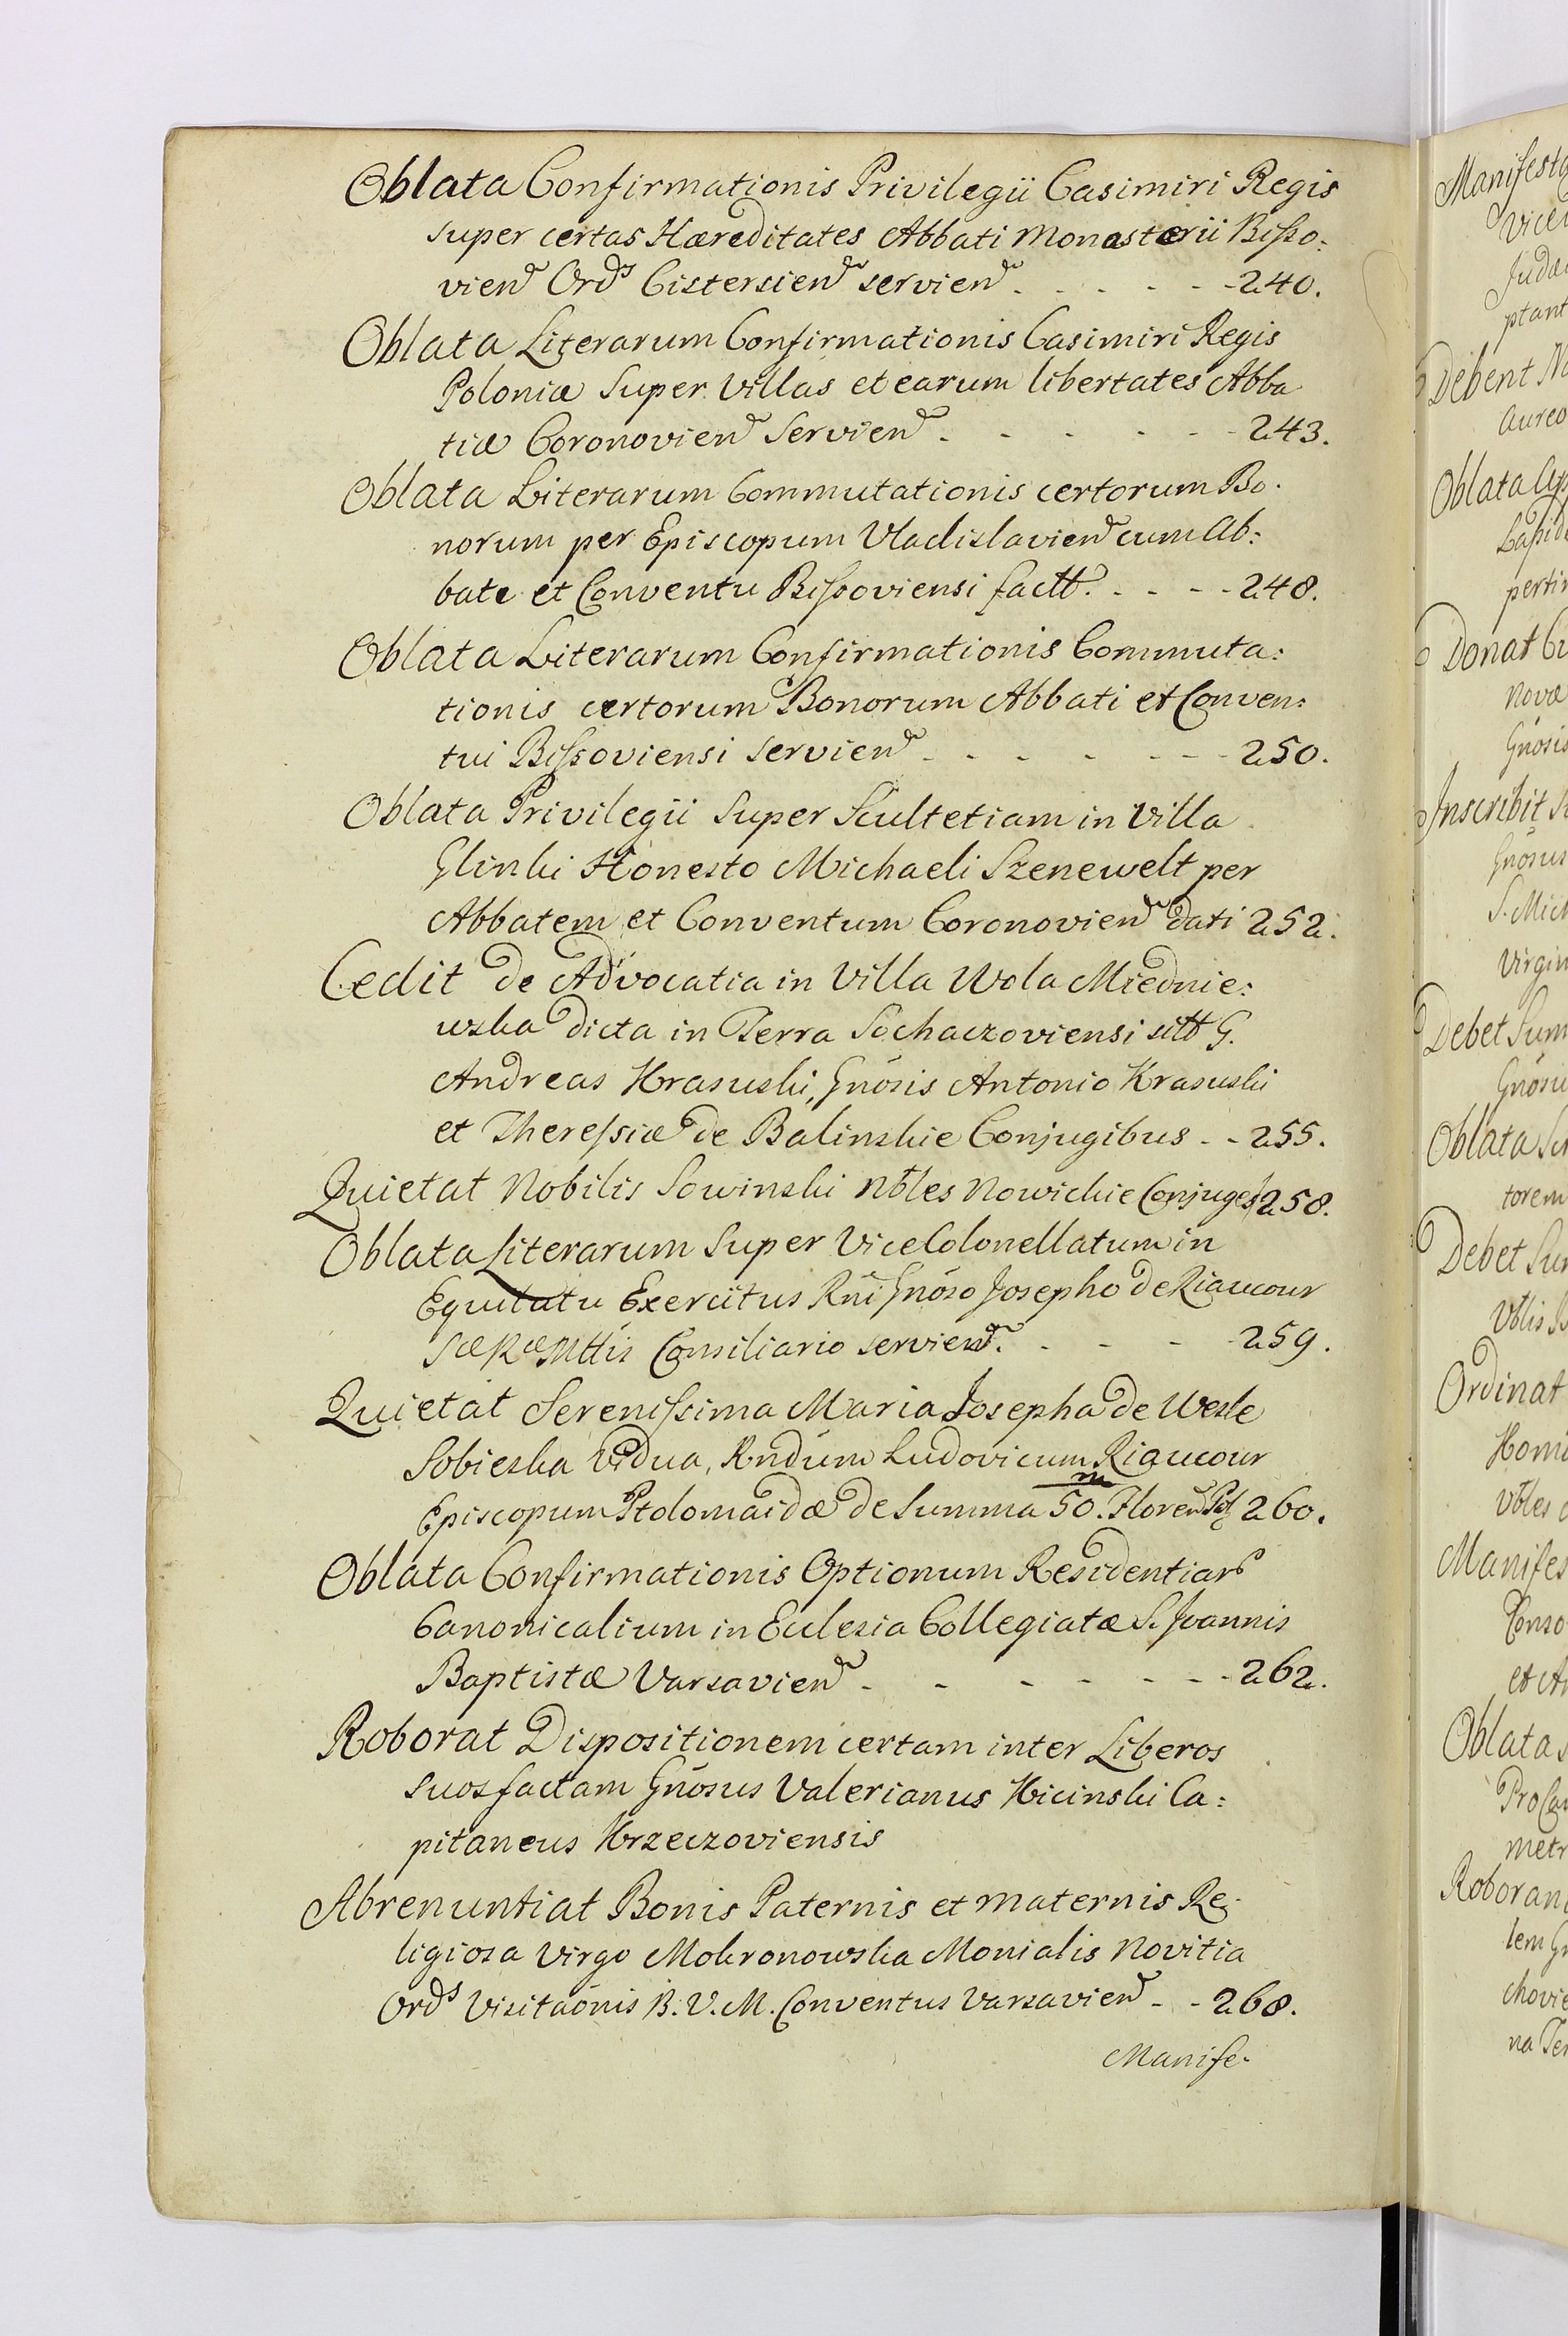 Oblata Confirmationis Privilegii Casimiri Regis
super certas Hæreditates Abbati Monasterii Bisso:
vien Ords Cistersien servien - - - - - 240.
Oblata Literarum Confirmationis Casimiri Regis
Poloniæ super Villas et earum libertates Abba
tiæ Coronovien Servien - - - - - 243.
Oblata Literarum Commutationis certorum Bo-
norum per Episcopum Vladislavien cum Ab:
bate et Conventu Bissoviensi factt. - - - 248.
Oblata Literarum Confirmationis Commuta:
tionis certorum Bonorum Abbati et Conven:
tui Bissoviensi servien - - - - - 250.
Oblata Privilegii super Scultetiam in Villa
Glinki Honesto Michaeli Szenewelt per
Abbatem et Conventum Coronovien dati 252.
Cedit de Advocatia in Villa Wola Miednie:
wska dicta in Terra Sochaczoviensi sitt G.
Andreas Krasuski, Gnosis Antonio Krasuski
et Theressiæ de Balinskie Conjugibus - - 255.
Quietat Nobilis Sowinski Nbles Nowickie Conjuges 258.
Oblata Literarum super ViceColonellatum in
Equitatu Exercitus Rni Gnoso Josepho de Riaucour
Sæ Ræ Mttis Consiliario servien. - - - 259.
Quietat Serenissima Maria Josepha de Wesle
Sobieska Vidua, Rndum Ludovicum Riaucour
Episcopum Ptolomaidæ de Summa 50.m Floren Pol 260.
Oblata Confirmationis Optionum Residentiar
Canonicalium in Eclesia Collegiatæ S. Joannis
Baptistæ Varsavien - - - - - 262.
Roborat Dispositionem certam inter Liberos
suos factam Gnosus Valerianus Kicinski Ca:
pitaneus Krzeczoviensis
Abrenuntiat Bonis Paternis et Maternis Re-
ligiosa Virgo Mokronowska Monialis Novitia
Ords Visitaonis B. V. M. Conventus Varsavien - - 268.
Manife-
Debent
aureo
Oblata
Donat
Novæ
Inscribit
Debet Sum
Oblata
torem
Debet
Ordinat
Manifes
et
Oblata
metr
Roboran